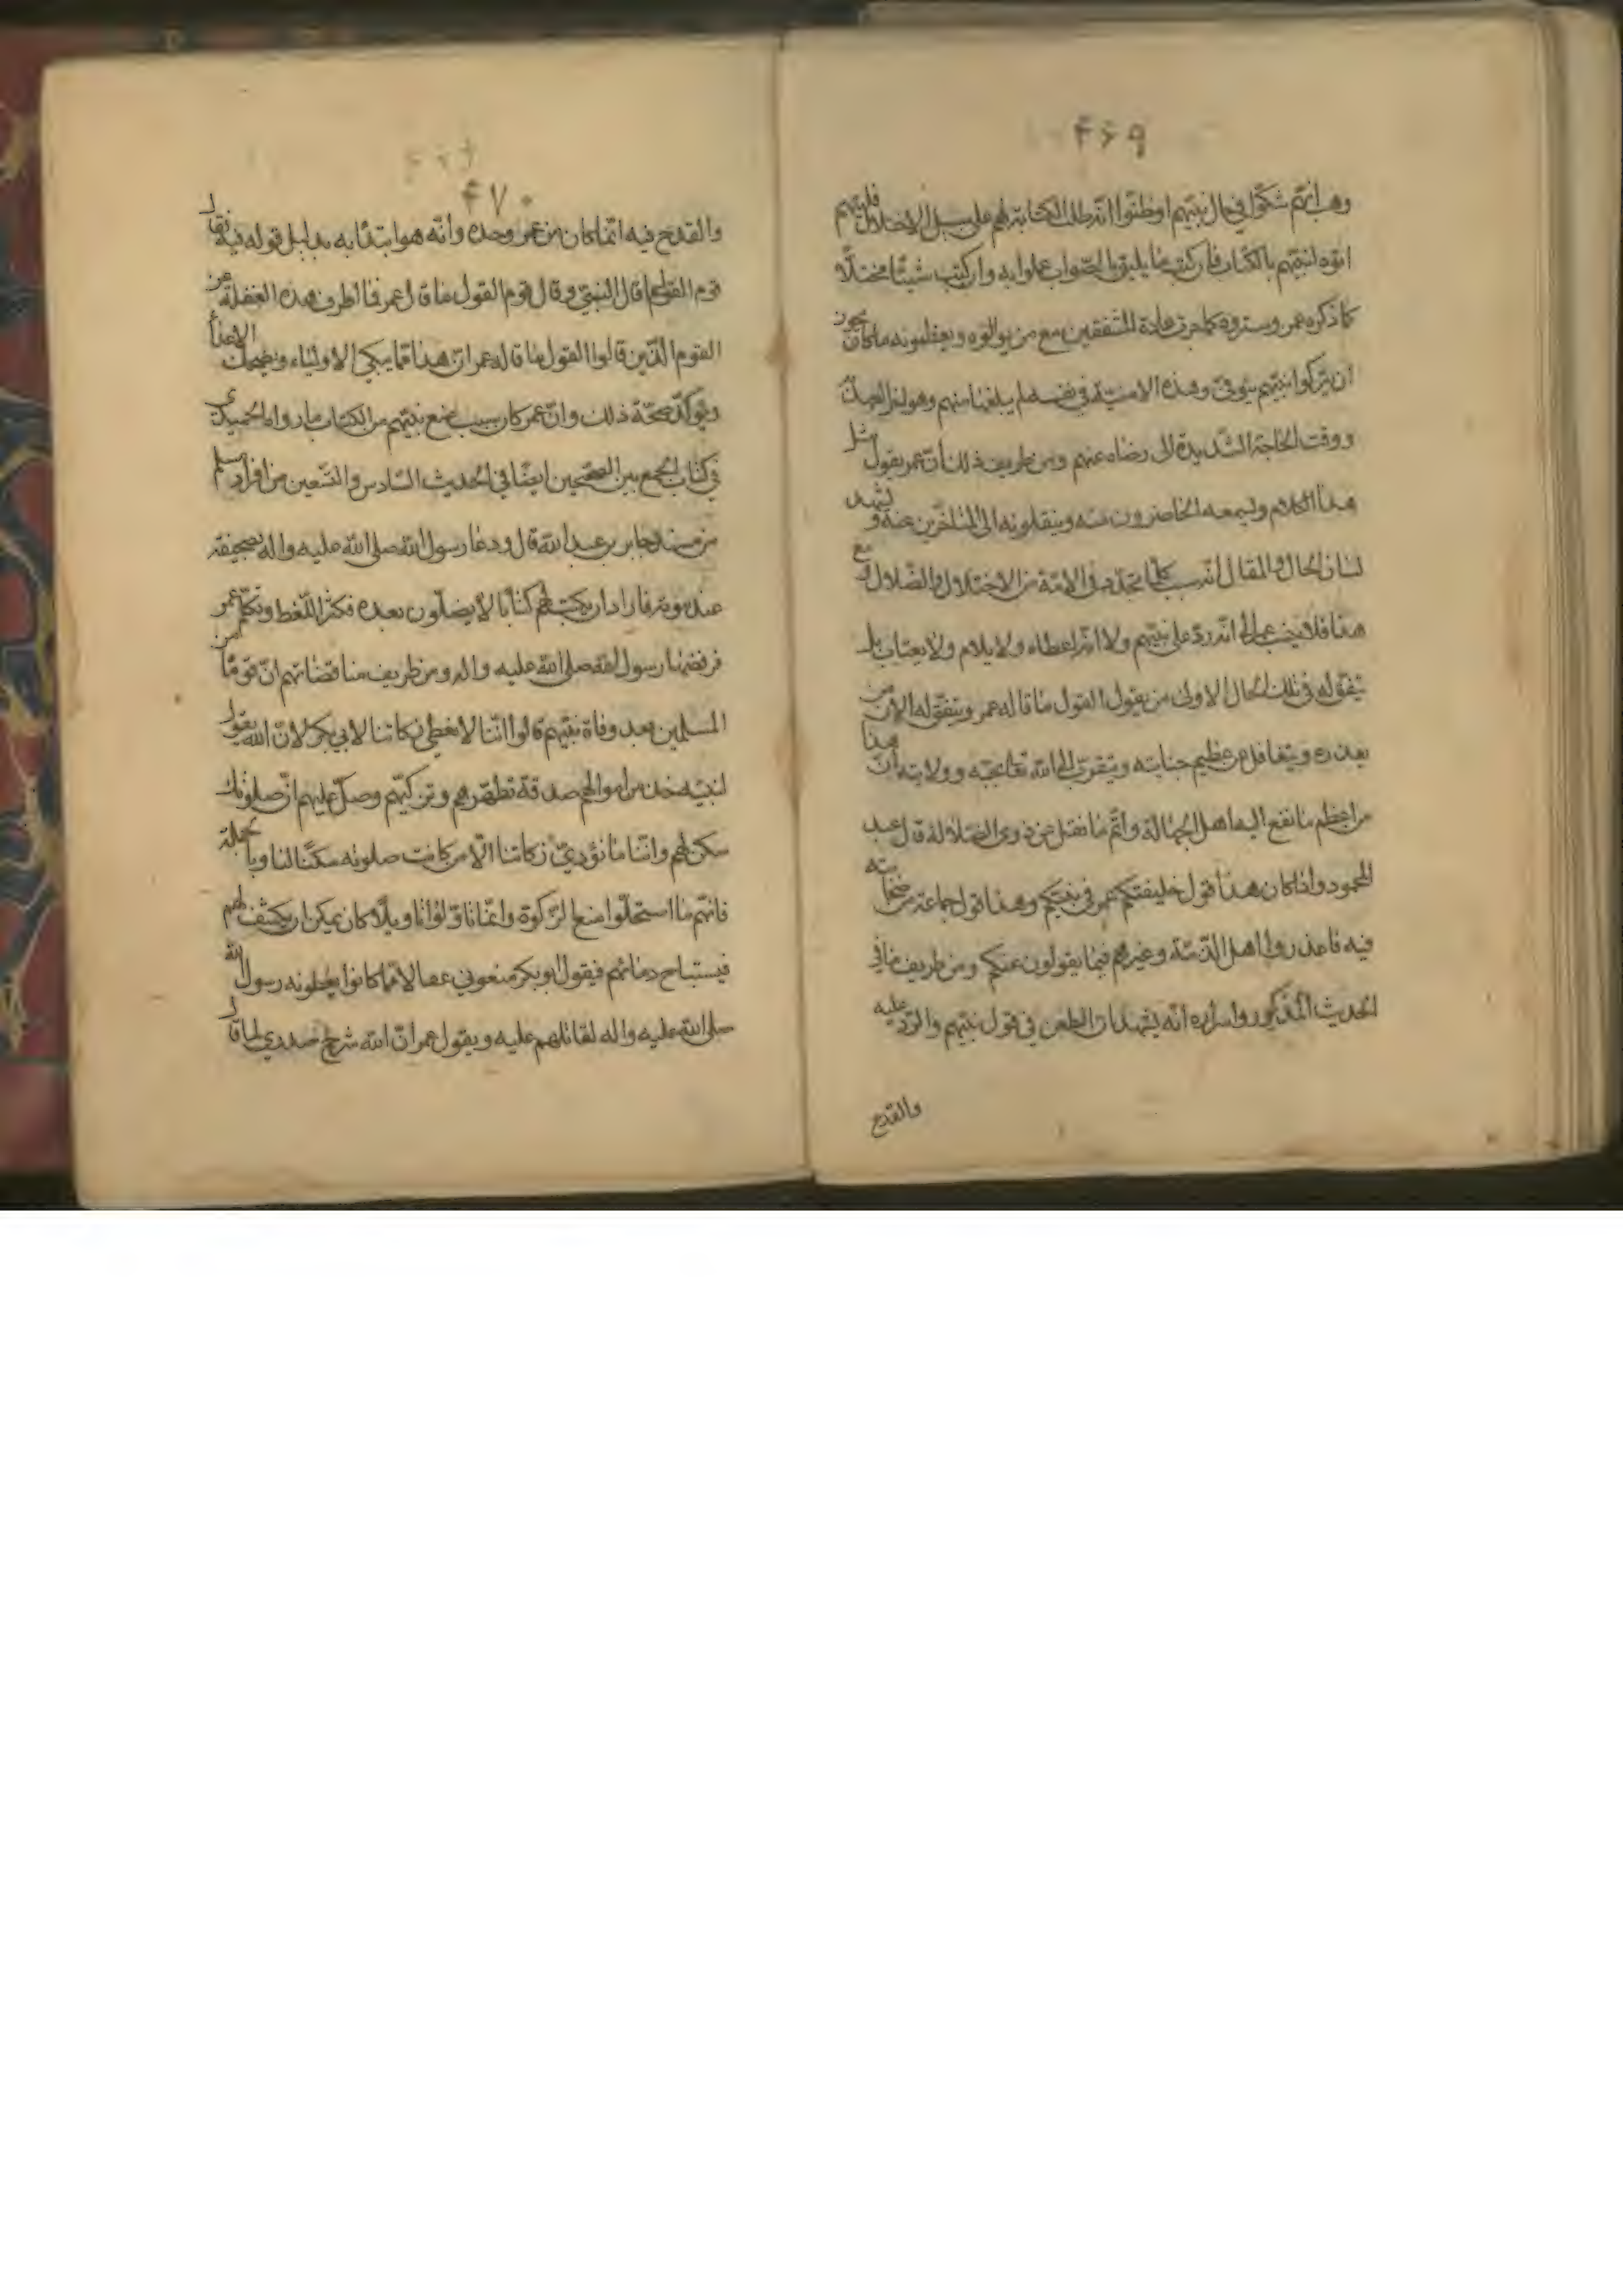 ۴۶۹
وهب انهم شكوا في حال نبيهم او ظنوا انه طلب الكتابة لهم على سبيل الاختلال فليتهم
اتوه لنبيهم بالكتاب فان كتب ما يليق بالصواب عملوا به وان كتب شيئا مختلا
كما ذكره عمر وستروه كما جرت عادة المشفقين مع من يوالوه ويعظمونه ما كان يجوز
ان يتركوا نبيهم يتوفى وهذه الامنية في نفسه لم يبلغها منهم وهو اخر العهد
ووقت الحاجة الشديدة الى رضاه عنهم ومن طريف ذلك ان عمر يقول مثل
هذا الكلام ويسمعه الحاضرون منه وينقلونه الى المتأخرين عنه ويشهد
لسان الحال والمقال انه سبب كلما تجدد في الامة من الاختلال والضلال ومع
هذا فلا يخب عمر الى انه رد على نبيهم ولا انه اخطاه ولا يلام ولا يعتاب بل
يتفق له في تلك الحال الاولى من يقول القول ما قاله عمر ويتفق له الآن من
يعذره ويتغافل عن عظيم جنايته ويتقرب الى الله تعالى بحبه وولايته ان هذا
من اعظم ما نقع اليها اهل الجهالة واتم ما نقل عن ذوي الضلالة قال عبد
المحمود واذا كان هذا قول خليفتكم عمر في نبيكم وهذا قول جماعة من صحابته
فيه فاعذروا اهل الذمة وغيرهم فيما يقولون عنكم ومن طريف ما في
الحديث المذكور واسراره انه يشهد ان الطعن في قول نبيهم والرد عليه
والقدح
۴۷۰
والقدح فيه انما كان من عمر وحده وانه هو ابتدأ به بدليل قوله فيه فقال
قوم القول ما قال النبي وقال قوم القول ما قال عمر فما اطرف هذه الغفلة من
القوم الذين قالوا القول ما قاله عمر ان هذا مما يبكي الاولياء ويضحك الاعداء
ويؤكد صحة ذلك وان عمر كان سبب منع نبيهم من الكتاب ما رواه الحميدي
في كتاب الجمع بين الصحيحين ايضا في الحديث السادس والتسعين من افراد مسلم
من مسند جابر بن عبد الله قال ودعا رسول الله صلى الله عليه واله بصحيفة
عند موته فاراد ان يكتب لهم كتابا لا يضلون بعده فكثر اللغط وتكلم عمر
فرفضها رسول الله صلى الله عليه واله ومن طريف مناقضاتهم ان قوما من
المسلمين بعد وفاة نبيهم قالوا اننا لا نعطي زكاتنا لابي بكر لان الله يقول
لنبيه خذ من اموالهم صدقة تطهرهم وتزكيهم وصل عليهم ان صلوتك
سكن لهم واننا ما نؤدي زكاتنا الا من كانت صلوته سكنا لنا وبالجملة
فانهم ما استحلوا منع الزكوة وانما تأولوا تأويلا كان يمكن ان يكشف لهم
فيستباح دمائهم فيقول ابو بكر منعوني عقالا مما كانوا يعطونه رسول الله
صلى الله عليه واله لقاتلهم عليه ويقول عمر ان الله شرح صدري لما قال